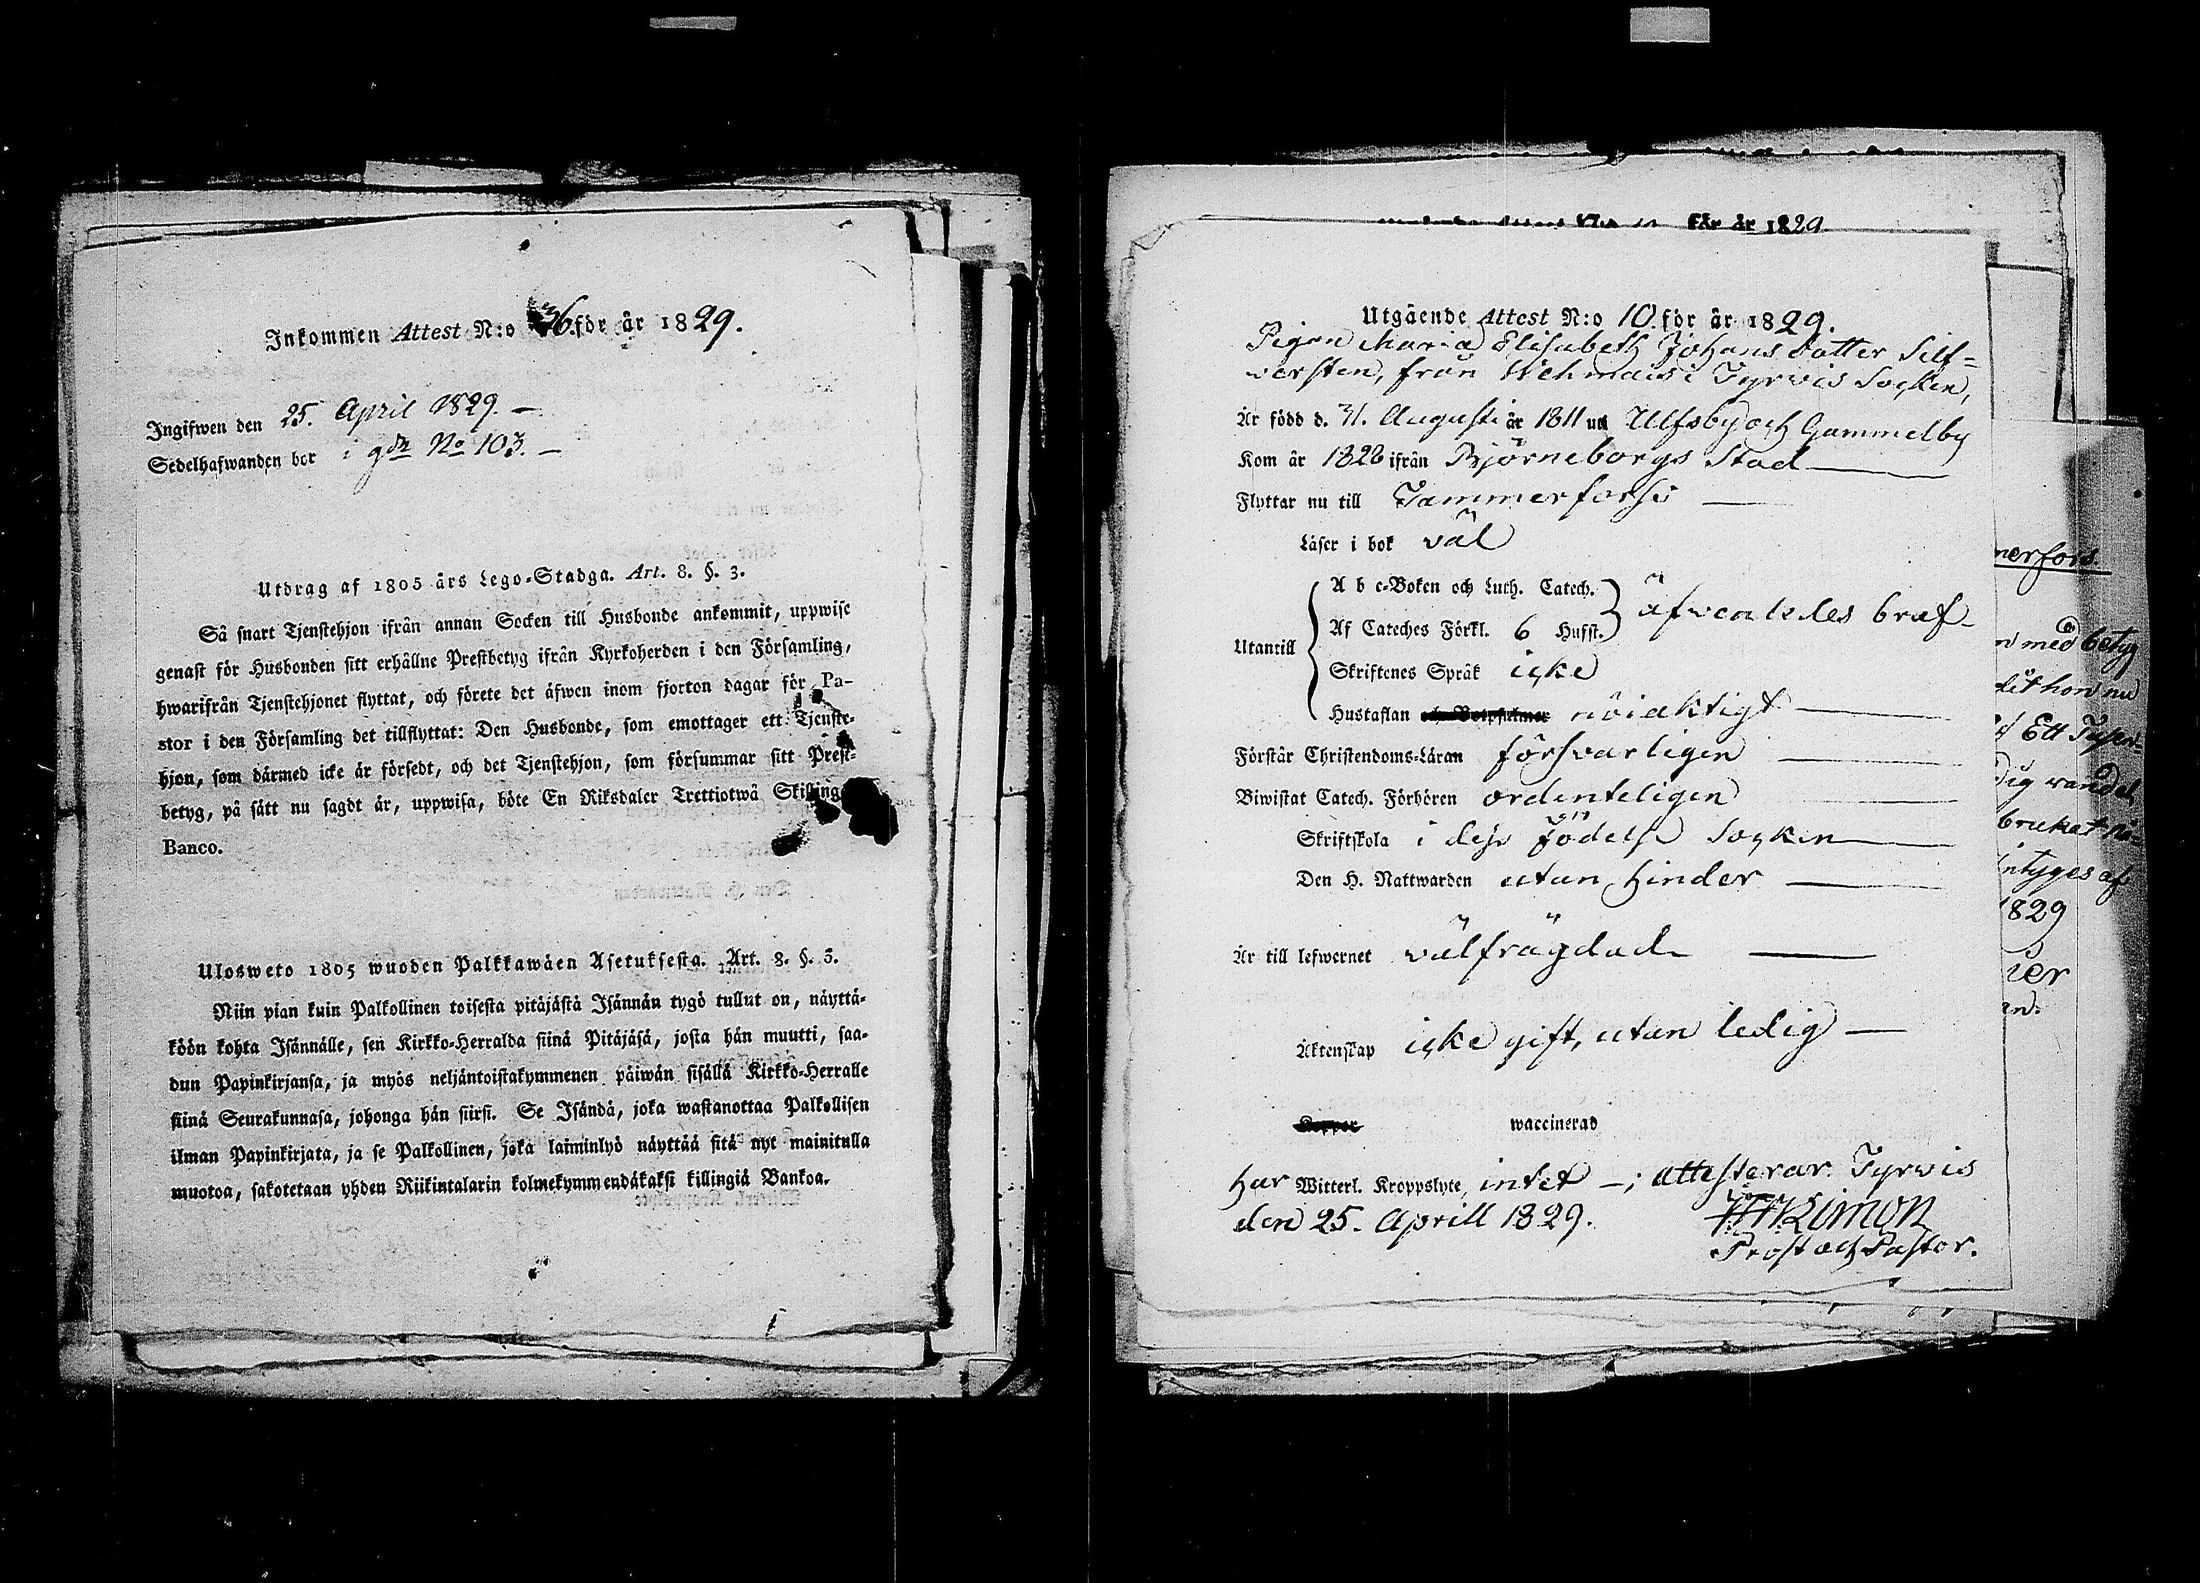 Inkommen Attest N:o 36. för år 1829.
Ingifwen den 25. April 1829. —
Sedelhafwanden bor i gdn No 103. —
Utdrag af 1805 års Lego-Stadga. Art. 8. §. 3.
Så snart Tjenstehjon ifrån annan Socken till Husbonde ankommit, uppwise
genast för Husbonden sitt erhållne Prestbetyg ifrån Kyrkoherden i den Församling,
hwarifrån Tjenstehjonet flyttat, och förete det äfwen inom fjorton dagar för Pa-
stor i den Församling det tillflyttat: Den Husbonde, som emottager ett Tjenste-
hjon, som därmed icke är försedt, och det Tjenstehjon, som försummar sitt Prest-
betyg, på sätt nu sagdt är, uppwisa, böte En Riksdaler Trettiotwå Skilling
Banco.
Ulosweto 1805 wuoden Palkkawäen Asetuksesta. Art. 8. §. 3.
Niin pian kuin Palkollinen toisesta pitäjästä Isännän tygö tullut on, näyttä-
köön kohta Isännälle, sen Kirkko-Herralda siinä Pitäjäsä, josta hän muutti, saa-
dun Papinkirjansa, ja myös neljäntoistakymmenen päiwän sisällä Kirkko-Herralle
siinä Seurakunnasa, johonga hän siirsi. Se Isändä, joka wastanottaa Palkollisen
ilman Papinkirjata, ja se Palkollinen, joka laiminlyö näyttää sitä nyt mainitulla
muotoa, sakotetaan yhden Riikintalarin kolmekymmendäkaksi killingiä Bankoa.
för år 1829.
Utgående Attest N:o 10. för år 1829.
Pigan Maria Elisabeth Johans dotter Silf-
versten, från Wehmais i Tyrvis Socken,
Är född d. 31. Augusti år 1811 uti Ulfsby och Gammelby
Kom år 1828 ifrån Björneborgs Stad —
Flyttar nu till Tammerforss —
Läser i bok väl
A b c-Boken och Luth. Catech.
Utantill
Af Cateches Förkl. 6 Hufst. äfvenledes braf
Skriftenes Språk icke
Hustaflan nöiaktigt —
Förstår Christendoms-Läran försvarligen —
Biwistat Catech. Förhören ordenteligen —
Skriftskola i dess Födelse Socken —
Den H. Nattwarden utan hinder —
Är till lefwernet välfrägdad —
Äktenskap icke gift, utan ledig —
waccinerad
har Witterl. Kroppslyte, intet —; attesterar. Tyrvis
den 25. Aprill 1829.
Prost och Pastor.
merfors.
med betyg
hon nu
Ett
dig wandel
brukat
intyges af
1829